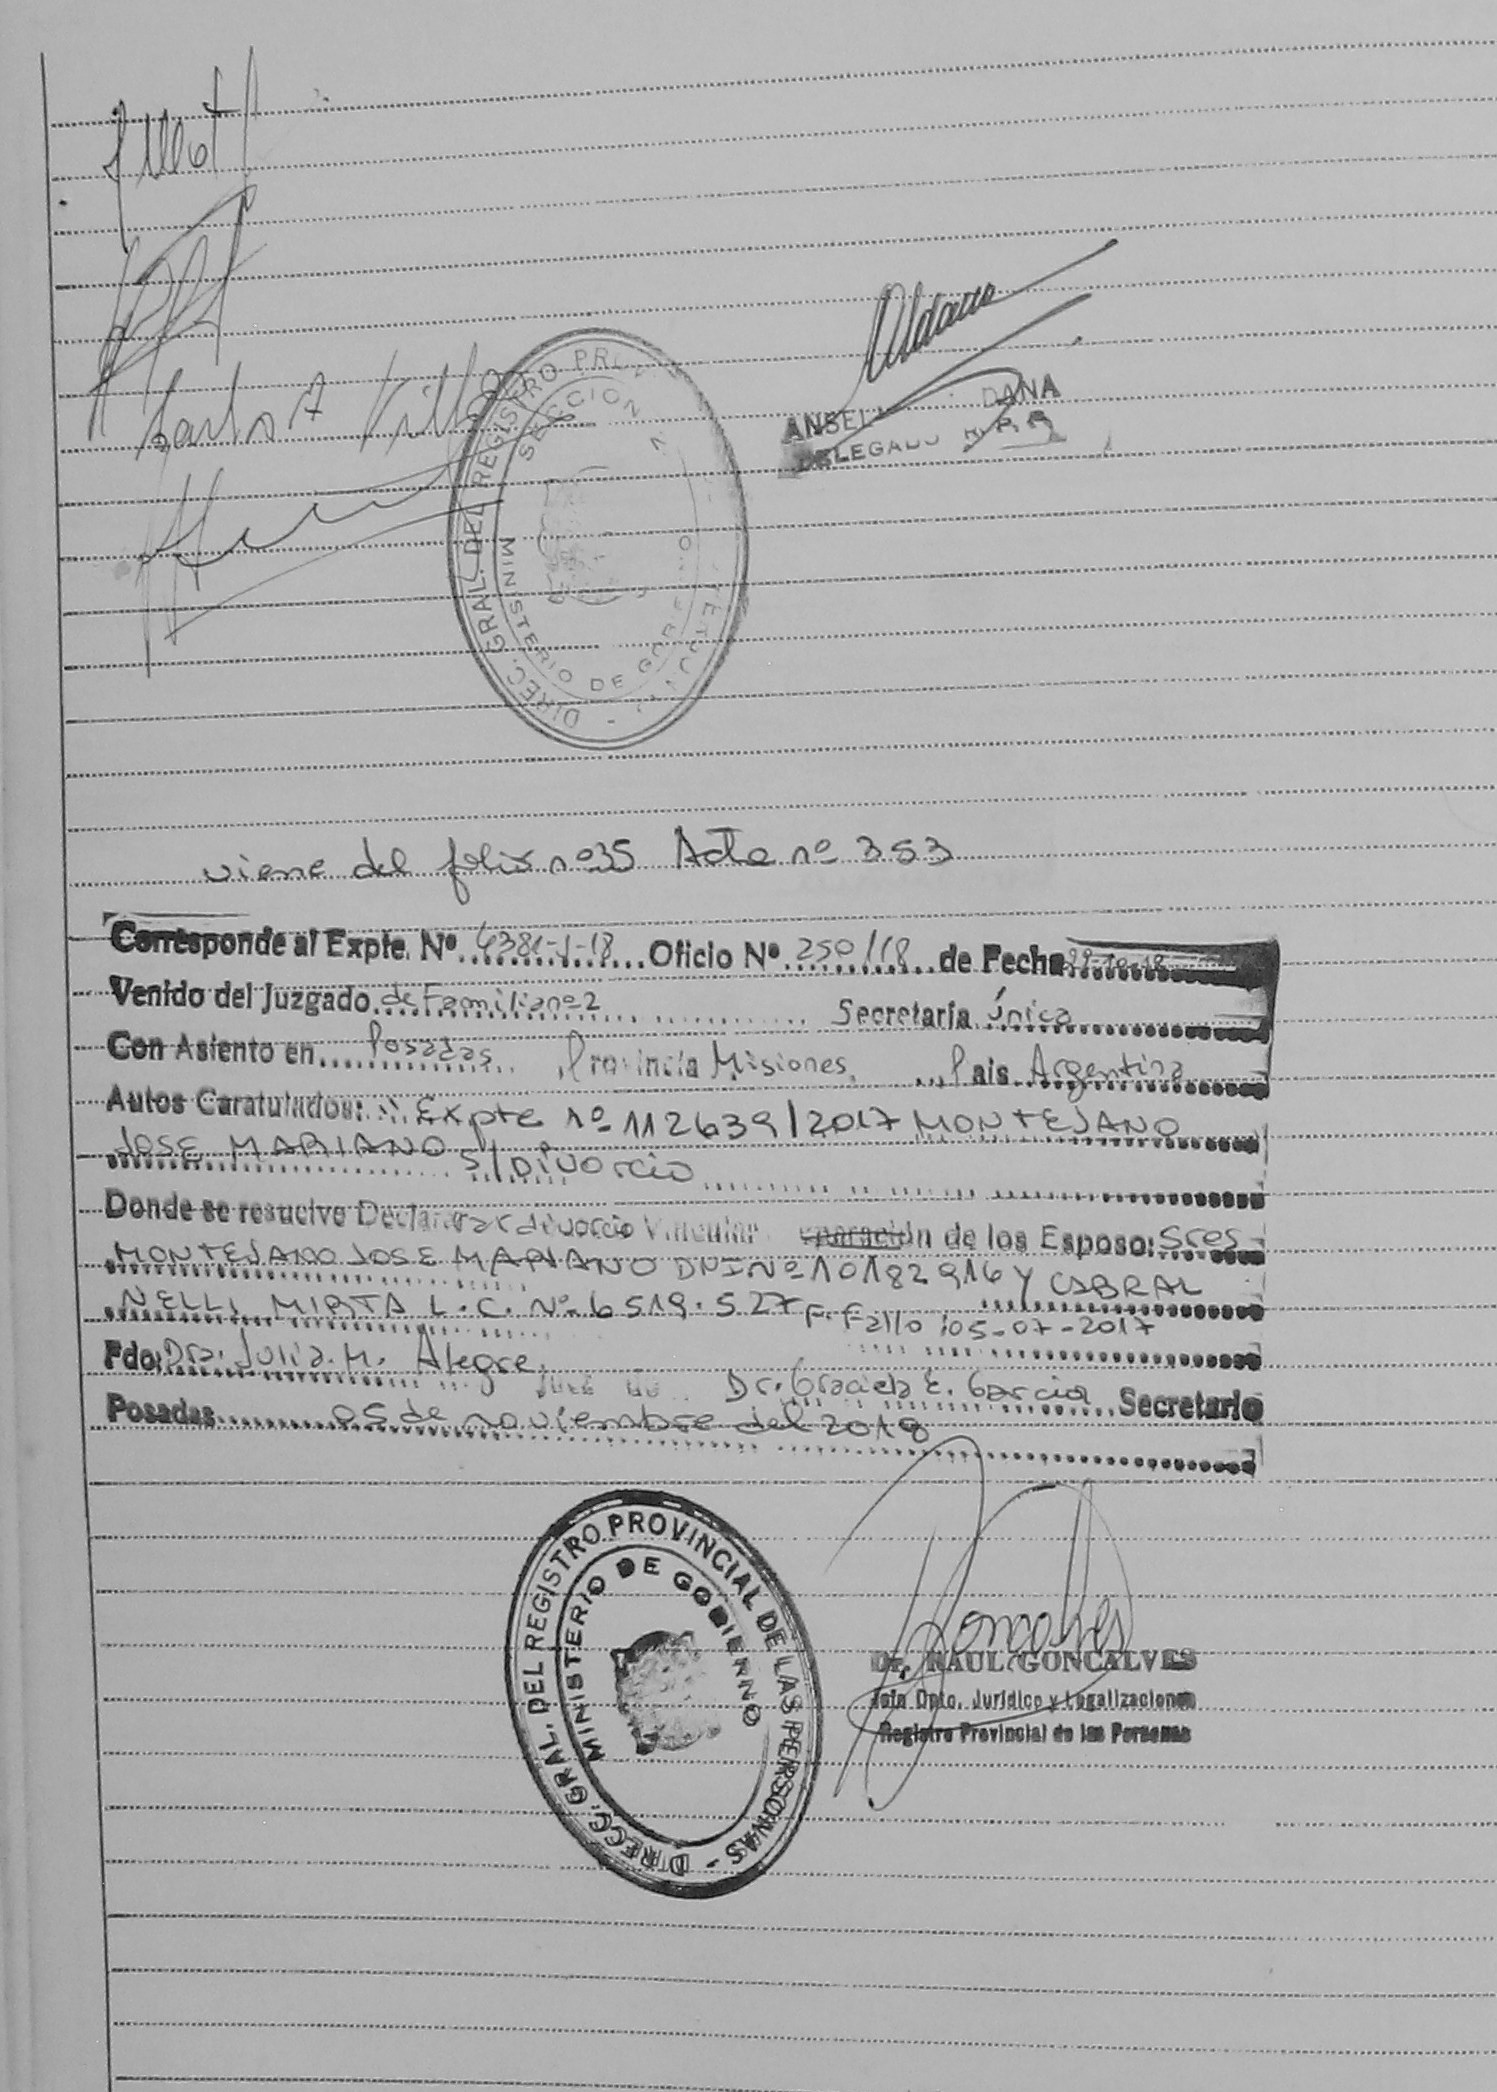 Carlos A Vill
DIREC. GRAL. DEL REGISTRO
SECCION
MINISTERIO DE
Aldana
DANA
DELEGADO
viene del folio nº 35 Acta nº 353
Corresponde al Expte. Nº 4381-J-18 Oficio Nº 250/18 de Fecha
Venido del Juzgado de Familia nº 2 Secretaría Única
Con Asiento en Posadas Provincia Misiones País Argentina
Autos Caratulados: Expte nº 112639/2017 MONTEJANO
JOSE MARIANO S/ Divorcio
Donde se resuelve Declarar divorcio Vincular de los Esposo: Sres
MONTEJANO JOSE MARIANO DNI Nº 10182916 Y CABRAL
NELLI MIRTA L.C. Nº 6519.527 F. Fallo :05-07-2017
Fdo: Dra. Julia. M. Alegre. Dr. Graciela E. Garcia Secretario
Posadas 05 de noviembre del 2018
DIRECC. GRAL. DEL REGISTRO PROVINCIAL DE LAS PERSONAS -
MINISTERIO DE GOBIERNO
Goncalves
Dr. RAUL GONCALVES
Jefe Dpto. Jurídico y Legalizaciones
Registro Provincial de las Personas